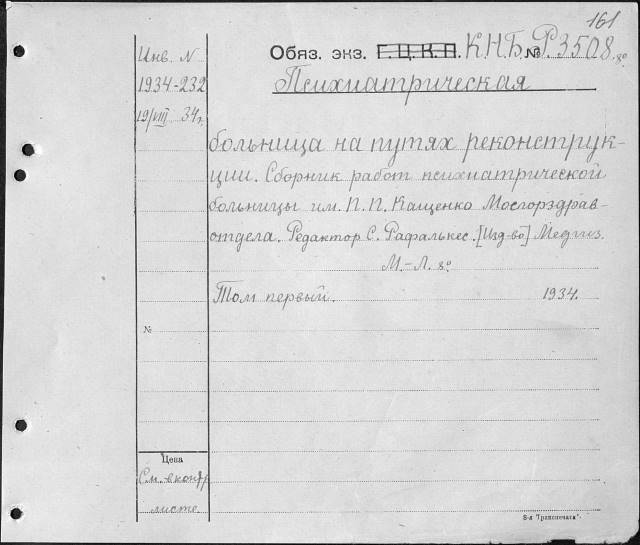 161
Обяз. экз. Г.Ц.К.П. К.Н.Б. № Р3508. 8º
Инв. N
1934-232
19/VIII 34г.
Психиатрическая
больница на путях реконструк-
ции. Сборник работ психиатрической
больницы им. П. П. Кащенко Мосгорздрав-
отдела. Редактор С. Рафалькес. [Изд-во] Медгиз.
М.-Л. 8º
Том первый. 1934.
№
Цена
См.
листе
8-я "Транспечать".